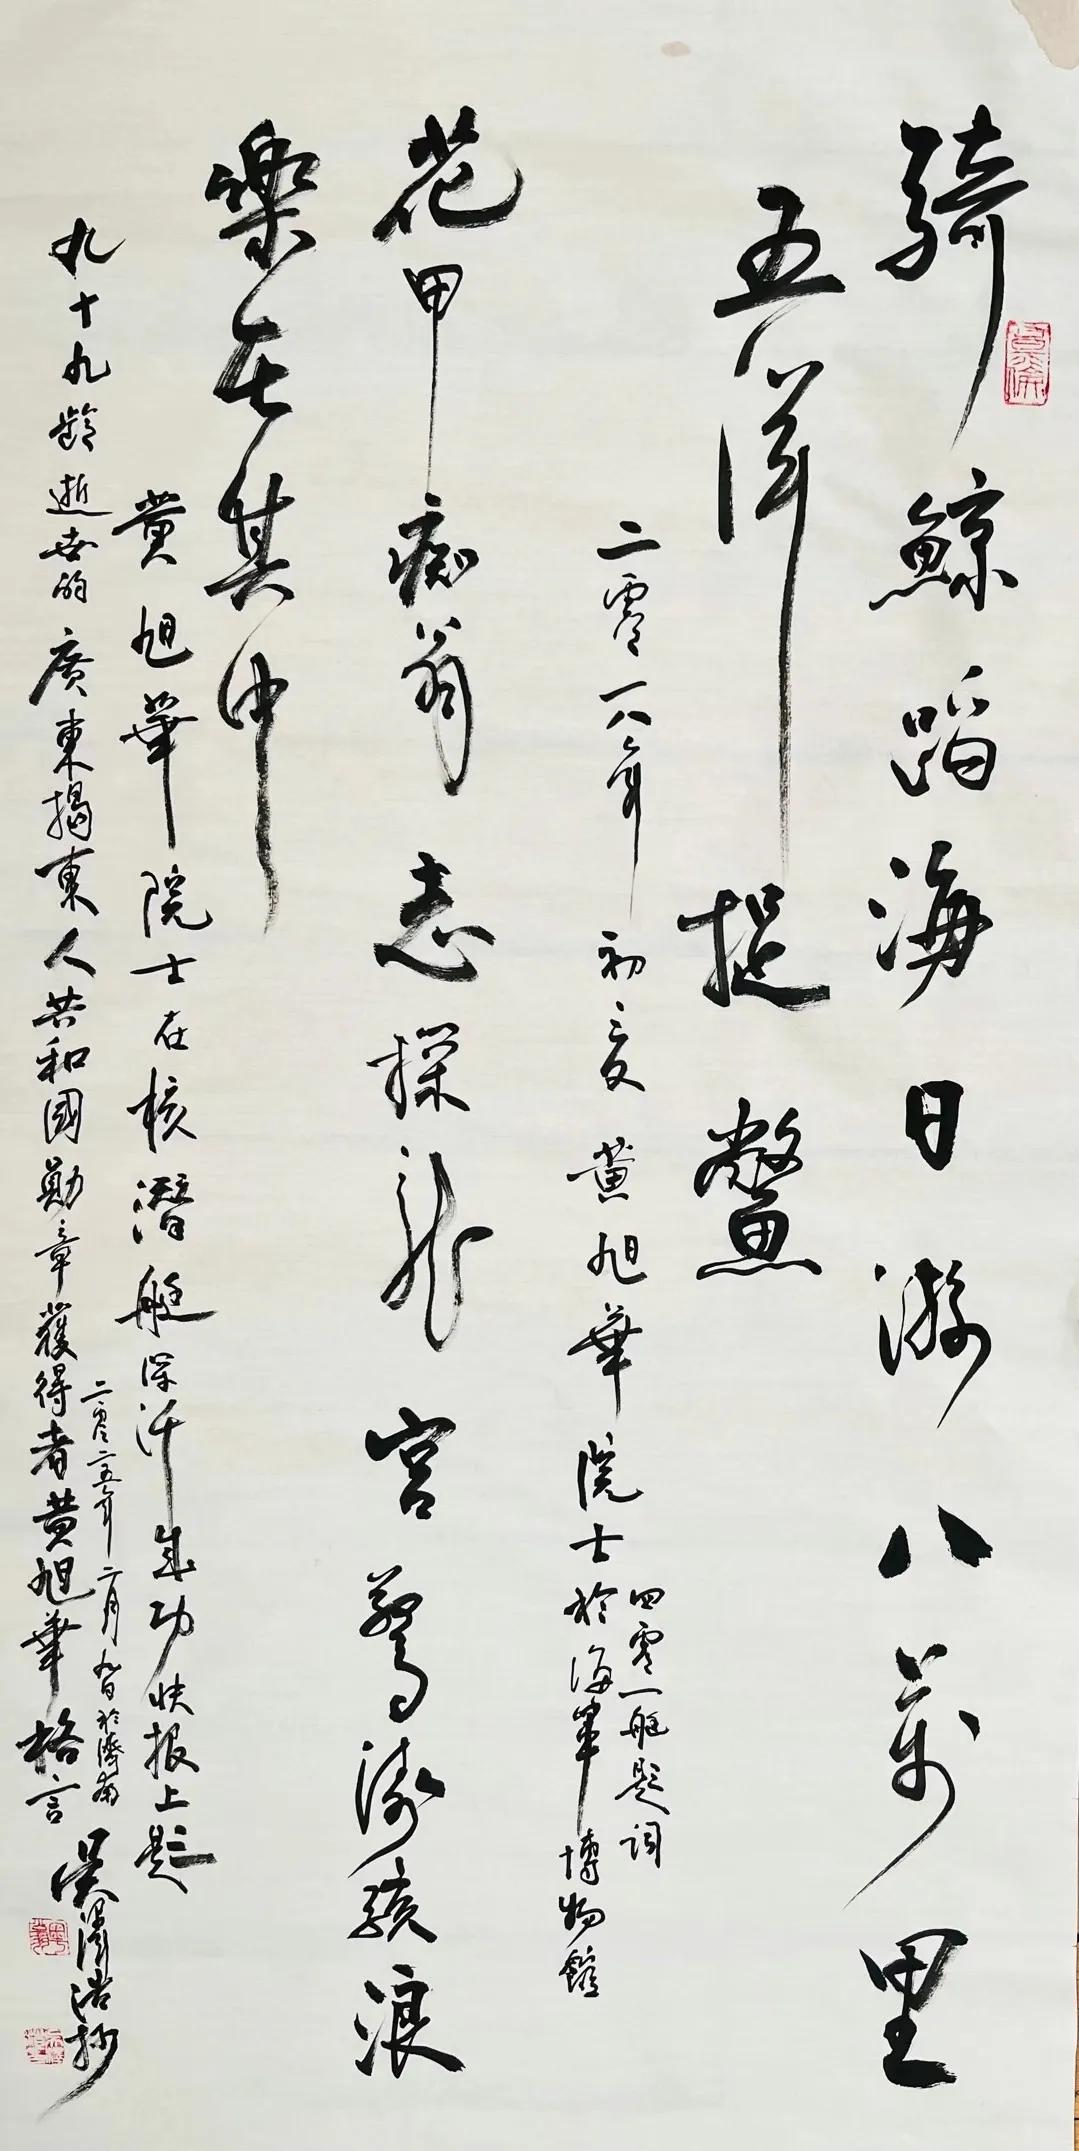 騎鯨蹈海日游八萬里
五洋捉鱉
二零一八年初夏黄旭華院士於海軍博物館
四零一艇題詞
花甲痴翁志探龍宫驚濤駭浪
樂在其中
黄旭華院士在核潛艇深汛成功快報上題
九十九齡逝世的廣東揭東人共和國勛章獲得者黄旭華格言
二零二五年二月九日於濟南
吴澤浩抄